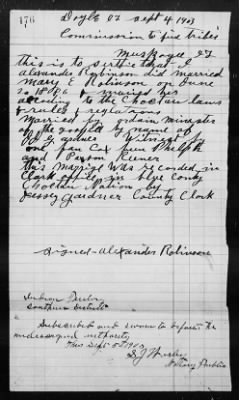 476
Doyle OT Sept 4 1903
Commission to five tribes
Muskogee IT
this is to sertice that I
alexander Robinson did married
Mary E Robinson, on June
20 1896 & maried her
according to the Choctaw laws
& rules & regulations
Married by ordain minister
of the gospel by name of
Witness by
one fen Cox fuen Phelph
and Person
this Marrige was recorded in
Clerk office in blue Conty
Choctaw Nation by
Jessey Gardner County Clerk
signed - alexander Robinson
Indian
Southern District
Subscribed and sworn to before the
undersigned authority
this Sept 5th 1903
Notary Public